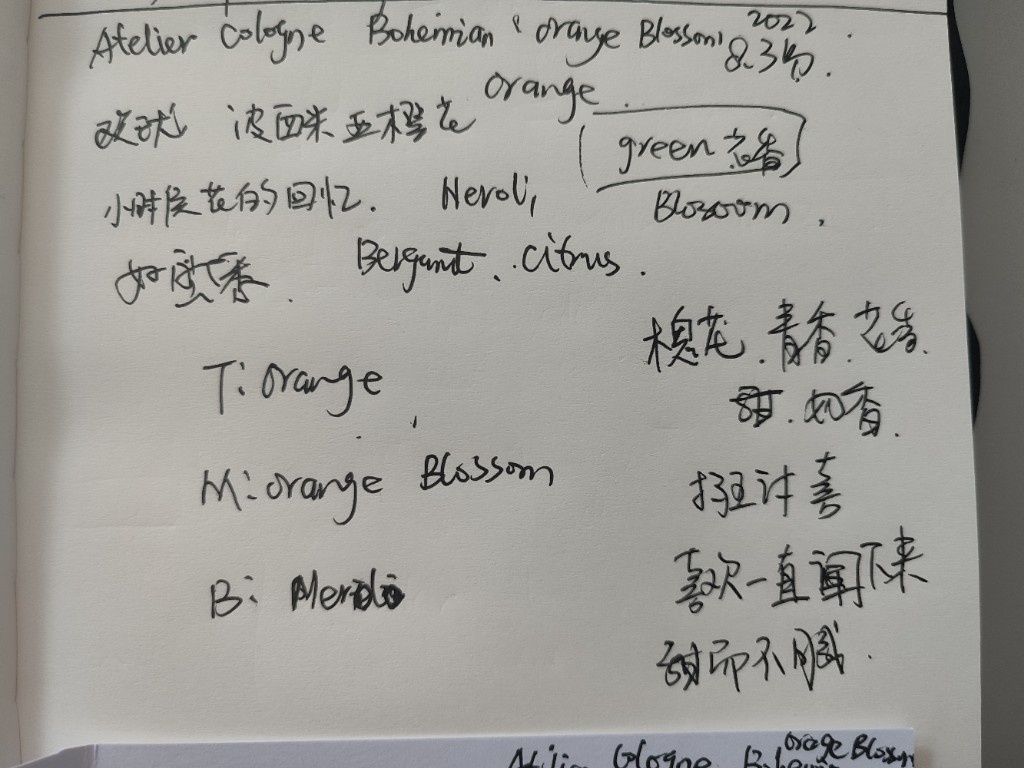 Atelier Cologne Bohemian orange Blossom 2022
8.3分.
欧珑 波西米亚橙花 orange.
green 花香
小时候花的回忆. Neroli, Blossoom,
Bergamt、citrus.
槐花.青香.花香.
T: orange
甜.奶香.
M: orange Blossom
讨喜
B: Neroli
喜欢一直闻下来
甜而不腻.
Atelier Cologne Bohemian orange Blossom